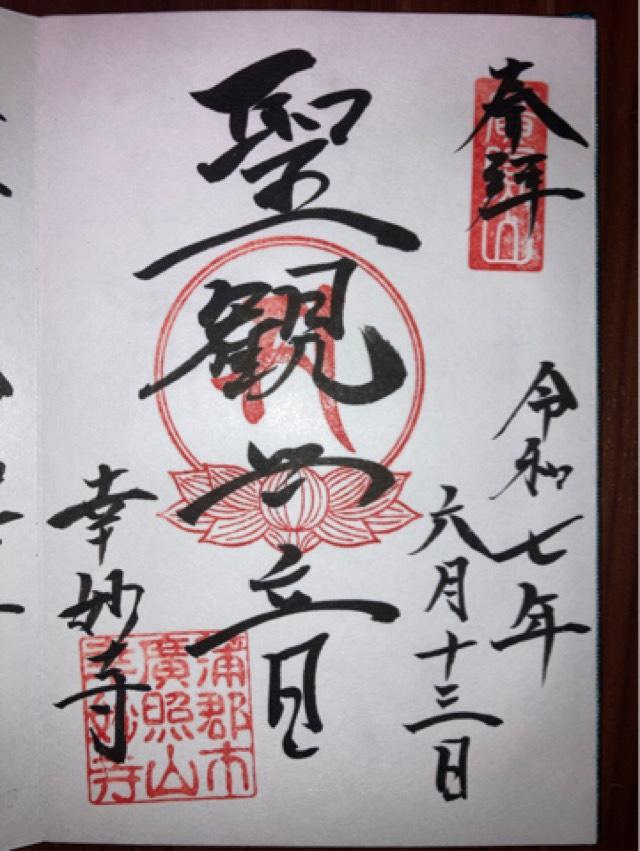 奉拝
廣照山
令和七年
六月十三日
聖観世音
幸妙寺
蒲郡市
廣照山
幸妙寺